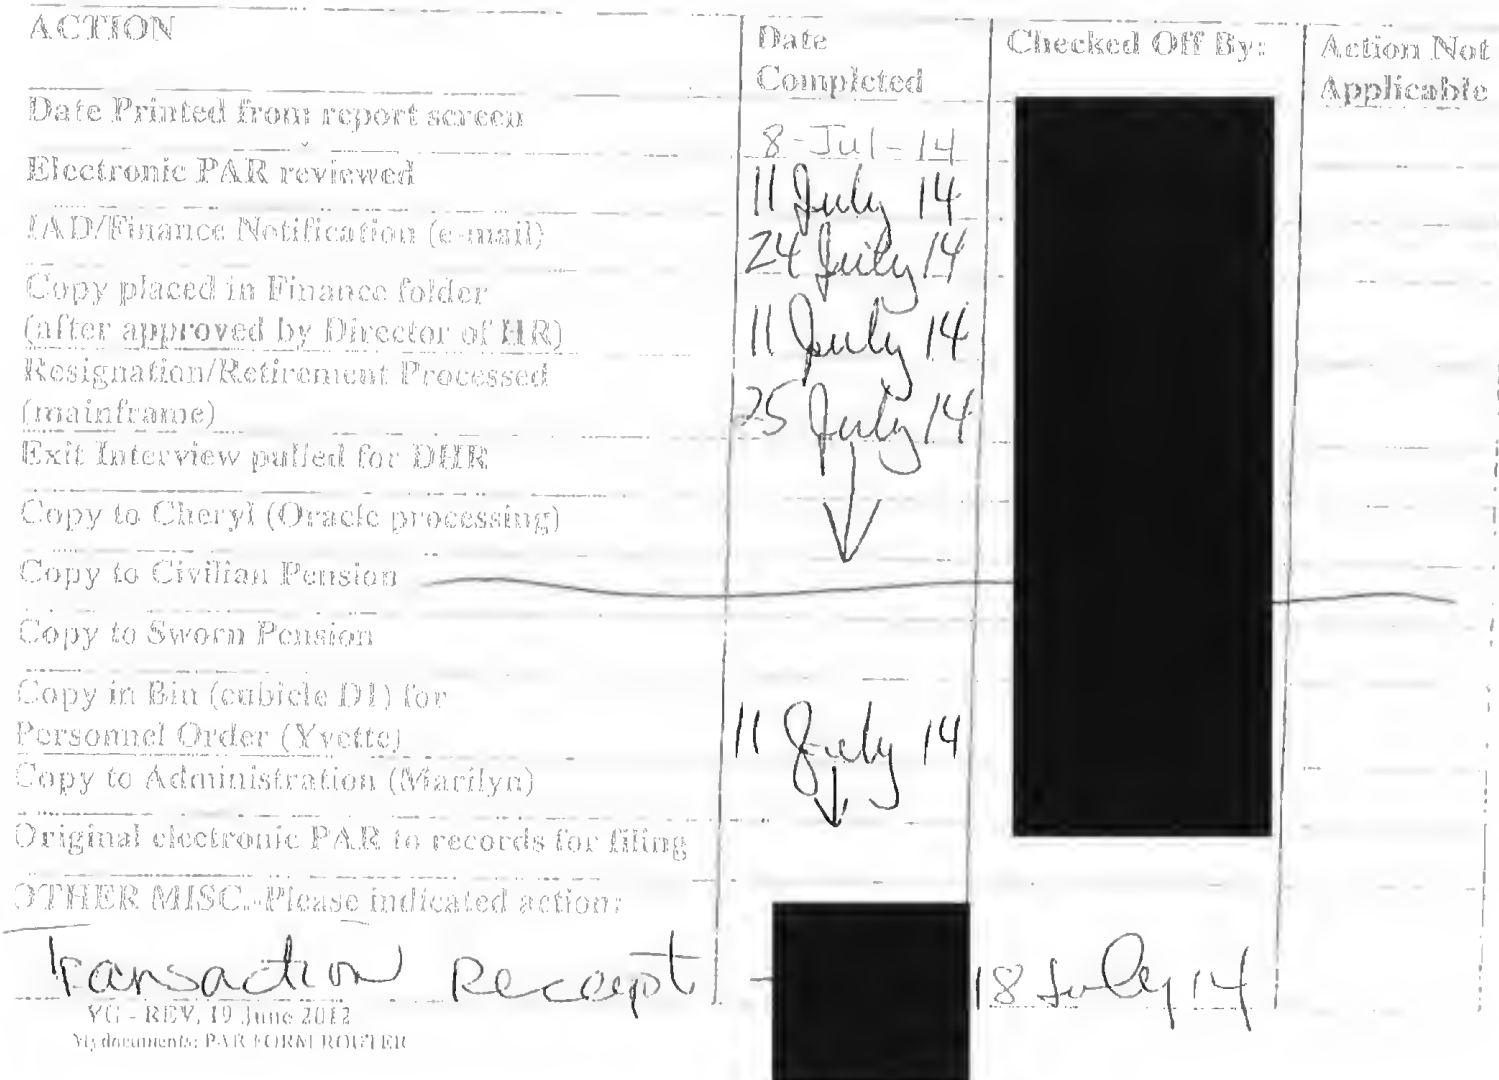 ACTION
Date Completed
Checked Off By:
Action Not Applicable
Date Printed from report screen
8-Jul-14
Electronic PAR reviewed
11 July 14
IAD/Finance Notification (e-mail)
24 July 14
Copy placed in Finance folder
(after approved by Director of HR)
11 July 14
Resignation/Retirement Processed
(mainframe)
25 July 14
Exit Interview pulled for DHR
Copy to Cheryl (Oracle processing)
Copy to Civilian Pension
Copy to Sworn Pension
Copy in Bin (cubicle D1) for
Personnel Order (Yvette)
11 July 14
Copy to Administration (Marilyn)
Original electronic PAR to records for filing
OTHER MISC.-Please indicated action:
Transaction Receipt - 18 July 14
YG - REV, 19 June 2012
My documents: PAR FORM ROUTER